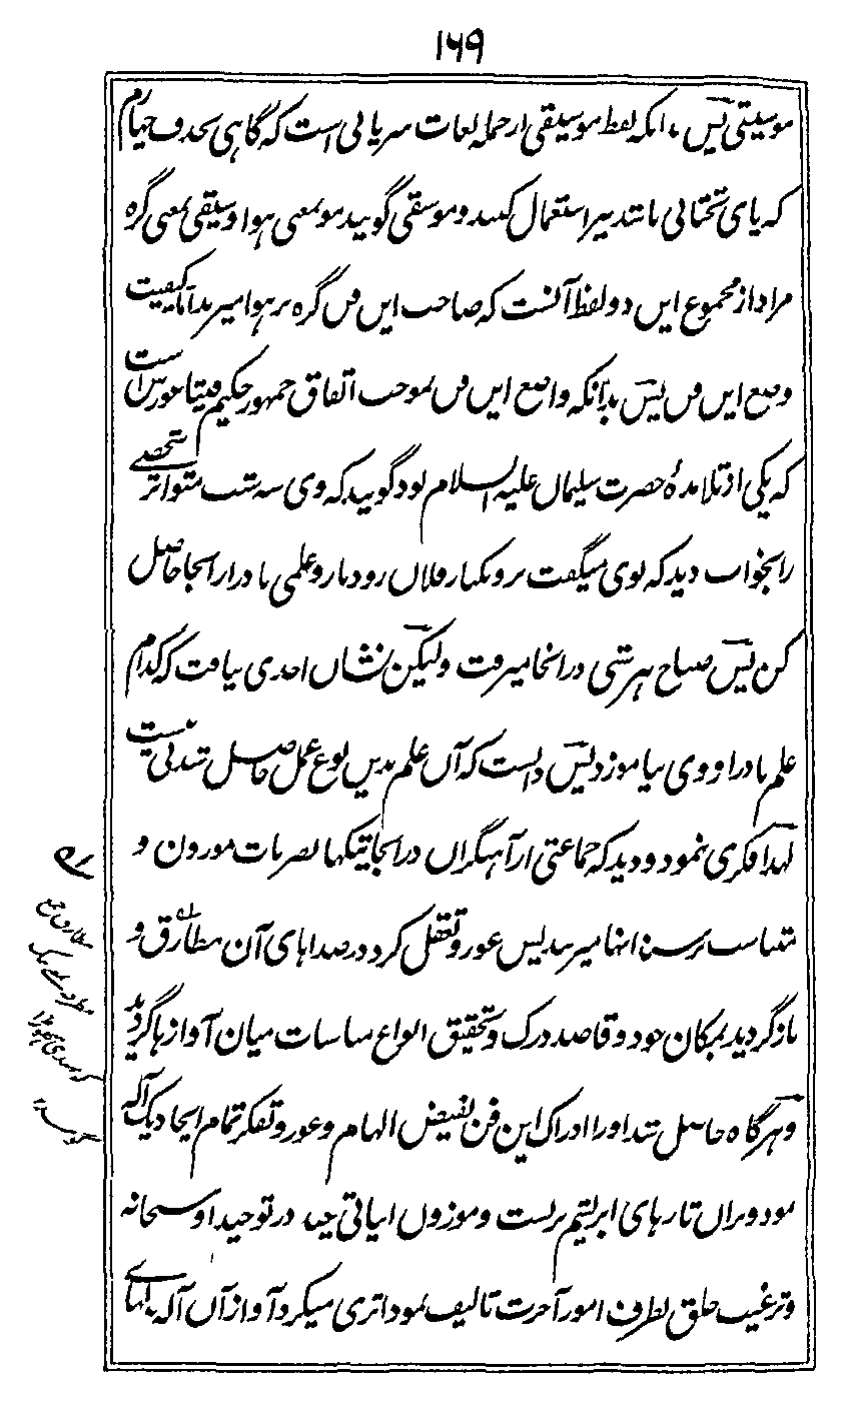 ۱۶۹
موسیقی پس بدانکه لفظ موسیقی از جمله لغات سریانی است که گاهی بحذف چهارم
که یای تحتانی باشد نیز استعمال کنند و موسقی گویند مو بمعنی هوا و سیقی بمعنی گره
مراد از مجموع این دو لفظ آنست که صاحب این فن گره بر هوا میزند اما کیفیت
وضع این فن پس بدانکه واضع این فن بموجب اتفاق جمهور حکیم فیثاغورس است
که یکی از تلامذهٔ حضرت سلیمان علیه السلام بود گویند که وی سه شب متواتر شخصی
را بخواب دید که بوی میگفت برو بکنار فلان رودبار و علمی نادر از انجا حاصل
کن پس صباح هر شبی در انجا میرفت ولیکن نشان احدی نیافت که کدام
علم نادر او وی بیاموزد پس دانست که آن علم بدین نوع عمل حاصل شدنی نیست
لهذا فکری نمود و دید که جماعتی از آهنگران در انجا پتکها بضربات موزون و
متناسب بر سندانها میزند پس غور و تعقل کرد در صداهای آن مطارق و
بازگردید بمکان خود و قاصد درک و تحقیق انواع مناسبات میان آوازها گردید
و هرگاه حاصل شد او را ادراک این فن بفیض الهام و غور و تفکر تمام ایجاد یک آله
نمود و بران تارهای ابریشم بربست و موزون ابیاتی چند در توحید او سبحانه
و ترغیب خلق بطرف امور آخرت تالیف نمود اتری میکرد آواز آن آله بدلهای
مطارق جمع